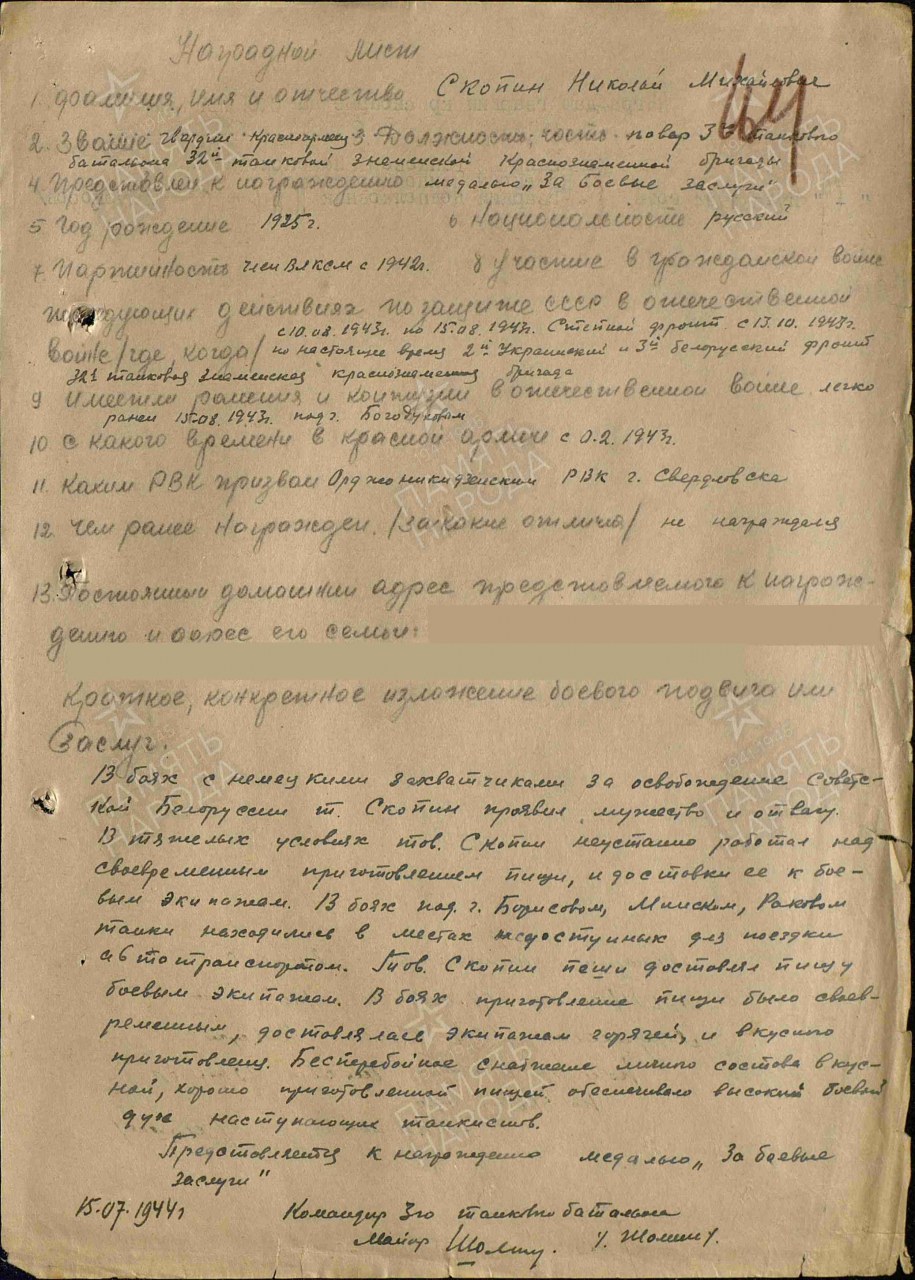 Наградной лист
1. Фамилия, имя и отчество Скопин Николай Михайлович
2. Звание гвардии красноармеец 3 Должность, часть повар 3го танкового
батальона 32й танковой Знаменской Краснознаменной бригады
4. Представлен к награждению медалью „За боевые заслуги"
5 Год рождение 1925 г. 6 Национальность русский
7. Партийность член ВЛКСМ с 1942 г. 8 Участие в гражданской войне
последующих действиях по защите СССР в отечественной
с 10.08.1943г. по 15.08.1943г. Степной фронт с 13.10.1943г.
войне /где, когда/ по настоящие время 2й Украинский и 3й белорусский фронт
32я танковая Знаменская краснознаменная бригада
9 Имеет ли ранения и контузии в отечественной войне легко
ранен 15.08.1943г. под г. Богодуховом
10 С какого времени в красной армии с 02.1943г.
11. Каким РВК призван Орджоникидзевским РВК г. Свердловска
12. Чем ранее награжден. /За какие отличия/ не награждался
13. Постоянный домашний адрес представляемого к награж-
дению и адрес его семьи:
Краткое, конкретное изложение боевого подвига или
Заслуг.
В боях с немецкими захватчиками за освобождение Советс-
кой Белоруссии т. Скопин проявил мужество и отвагу.
В тяжелых условиях тов. Скопин неустанно работал над
своевременным приготовлением пищи, и доставки ее к бое-
вым экипажам. В боях под г. Борисовом, Минском, Раковом
танки находились в местах недоступных для поездки
автотранспортом. Тов. Скопин пеши доставлял пищу
боевым экипажам. В боях приготовление пищи было своев-
ременным, доставлялась экипажам горячей, и вкусного
приготовления. Бесперебойное снабжение личного состава вкус-
ной, хорошо приготовленной пищей обеспечивало высокий боевой
дух наступающих танкистов.
Представляется к награждению медалью „За боевые
заслуги"
15.07.1944г Командир 3го танкового батальона
Майор